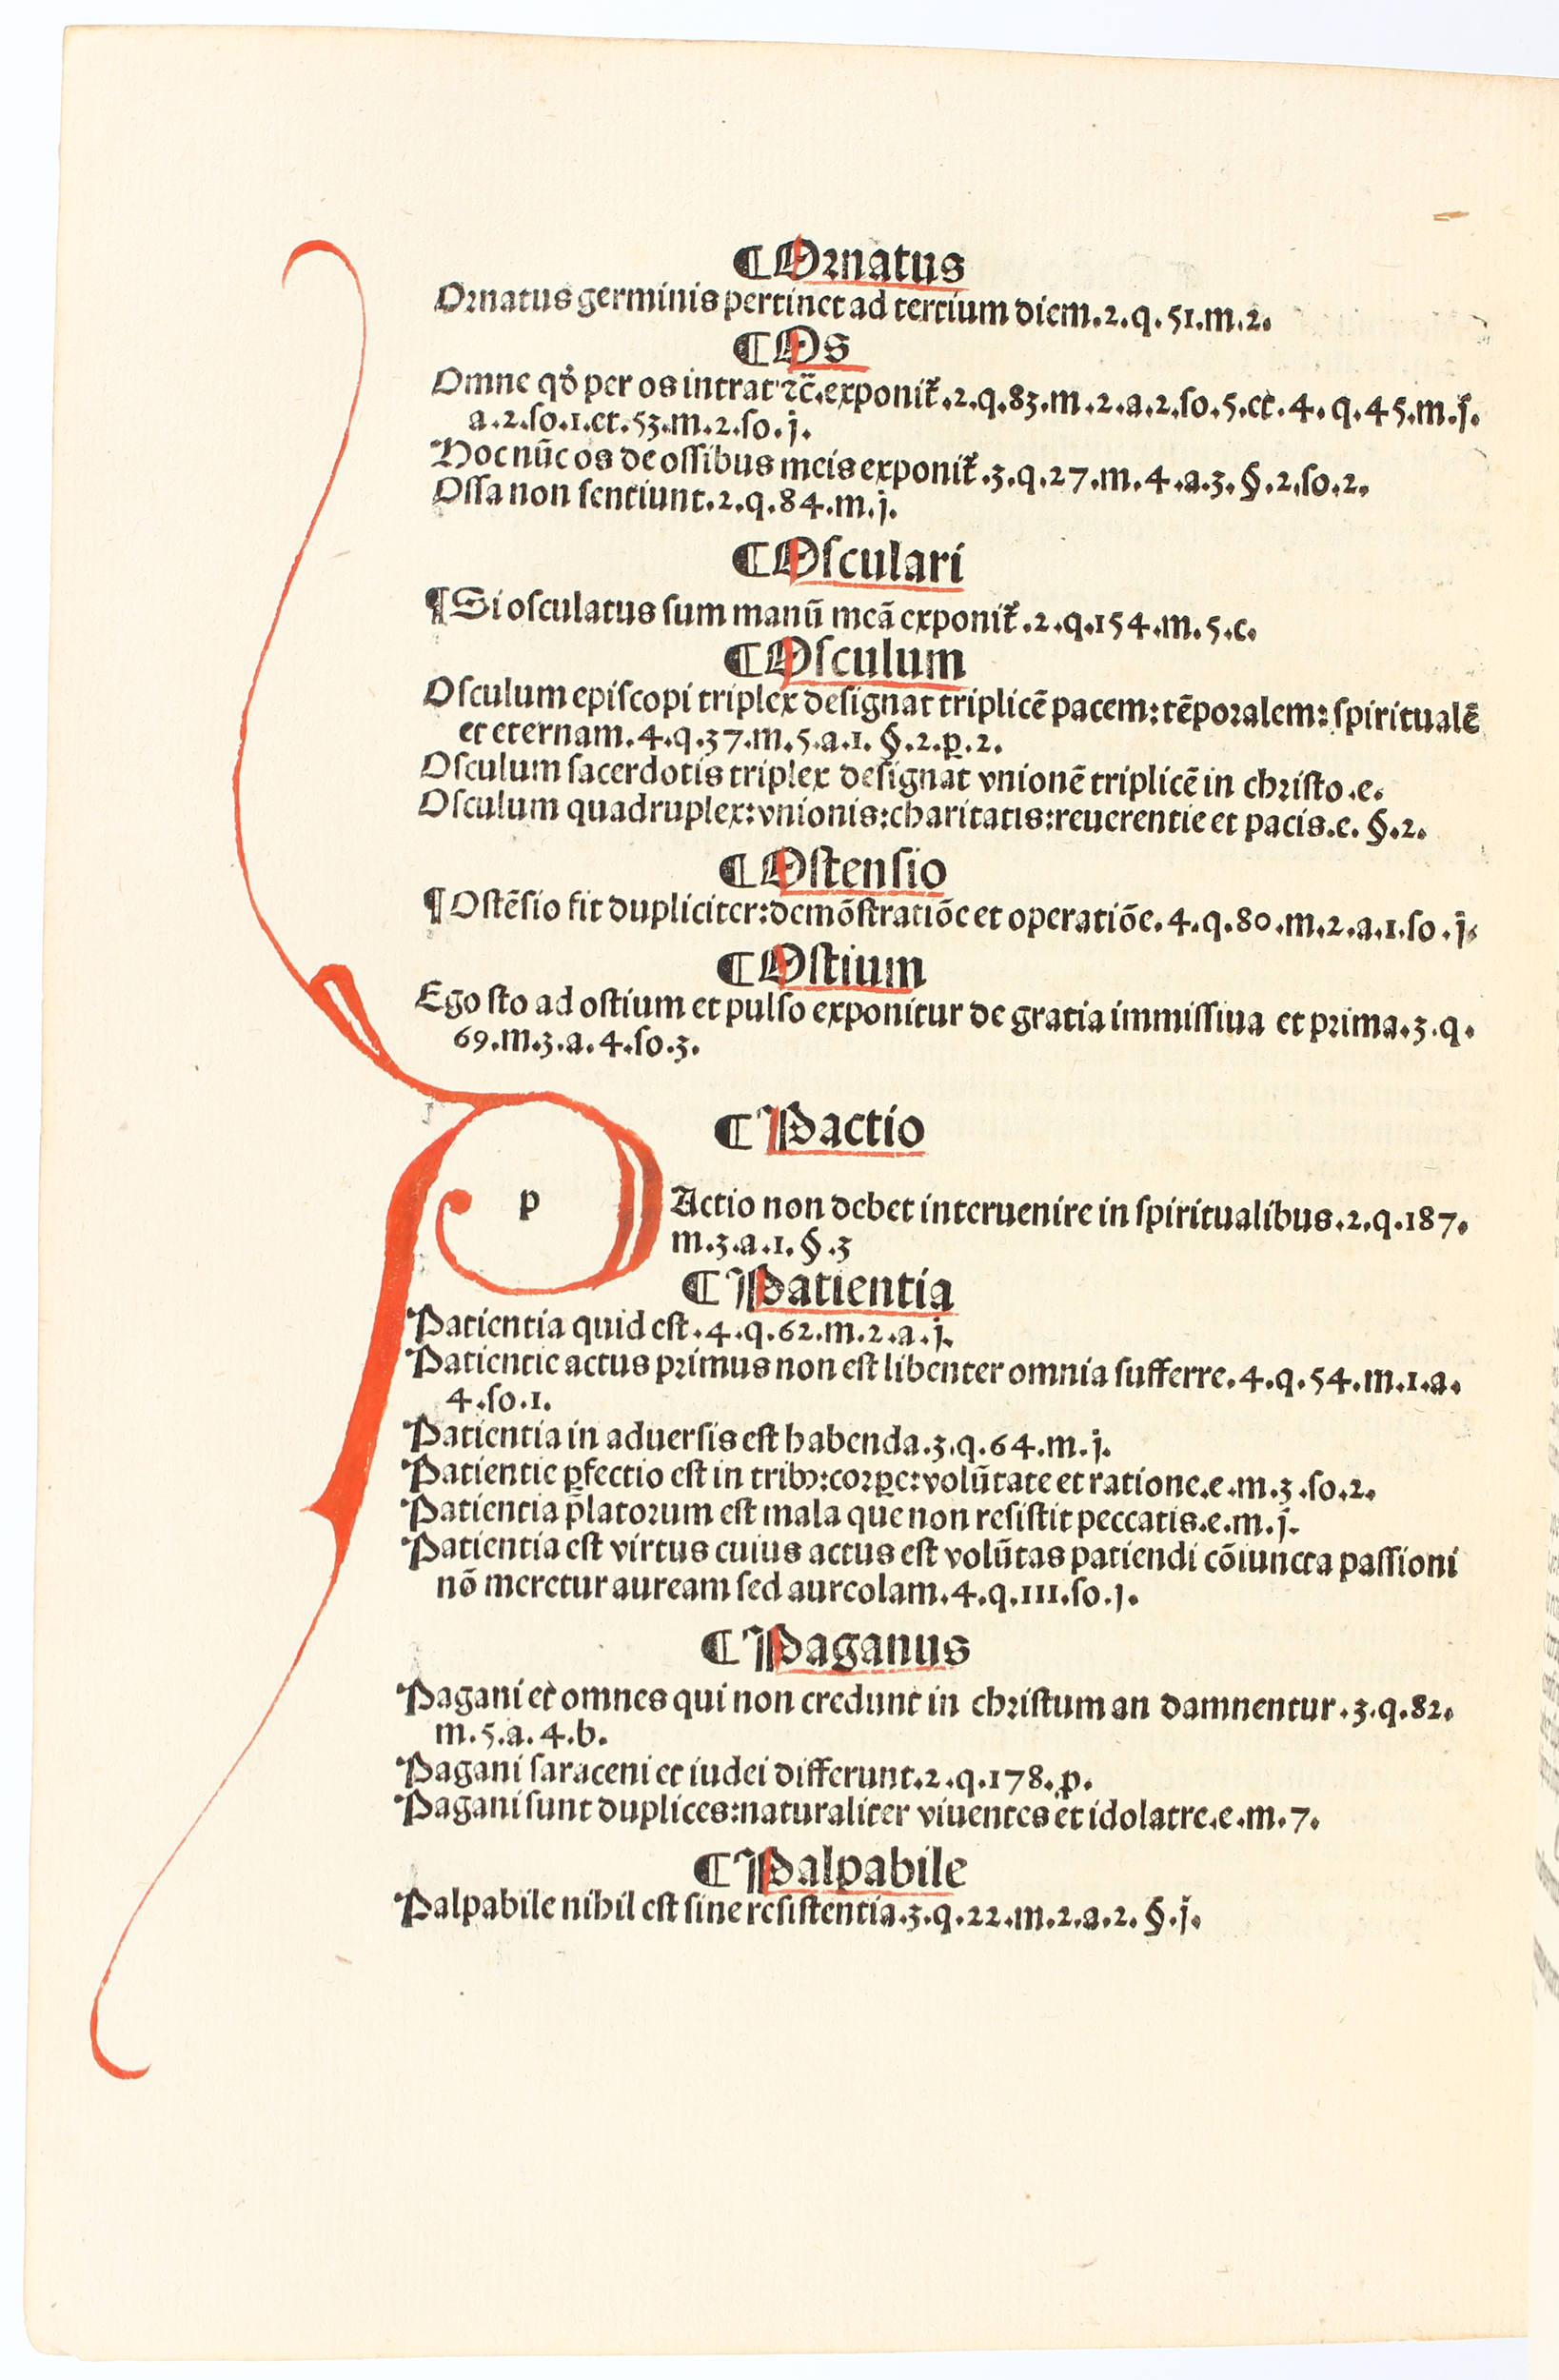 ¶ Ornatus
Ornatus germinis pertinet ad tertium diem.2.q.51.m.2.
¶ Os
Omne qđ per os intrat ⁊c̄.exponit᷑.2.q.83.m.2.a.2.ſo.5.et.4.q.45.m.j.
a.2.ſo.1.et.53.m.2.ſo.j.
Hoc nūc os de oſſibus meis exponit᷑.3.q.27.m.4.a.3.§.2.ſo.2.
Oſſa non ſentiunt.2.q.84.m.j.
¶ Oſculari
¶ Si oſculatus ſum manū meā exponit᷑.2.q.154.m.5.c.
¶ Oſculum
Oſculum epiſcopi triplex deſignat triplicē pacem:tēporalem:ſpiritualē
et eternam.4.q.37.m.5.a.1.§.2.p̱.2.
Oſculum ſacerdotis triplex deſignat vnionē triplicē in chriſto.e.
Oſculum quadruplex:vnionis:charitatis:reuerentie et pacis.e.§.2.
¶ Oſtenſio
¶ Oſtēſio fit dupliciter:demōſtratiōe et operatiōe.4.q.80.m.2.a.1.ſo.j.
¶ Oſtium
Ego ſto ad oſtium et pulſo exponitur de gratia immiſſiua et prima.3.q.
69.m.3.a.4.ſo.3.
¶ Pactio
p Actio non debet interuenire in ſpiritualibus.2.q.187.
m.3.a.1.§.3
¶ Patientia
Patientia quid eſt.4.q.62.m.2.a.j.
Patientie actus primus non eſt libenter omnia ſufferre.4.q.54.m.1.a.
4.ſo.1.
Patientia in aduerſis eſt habenda.3.q.64.m.j.
Patientie ꝑfectio eſt in tribꝰ:corꝑe:volūtate et ratione.e.m.3.ſo.2.
Patientia p̄latorum eſt mala que non reſiſtit peccatis.e.m.j.
Patientia eſt virtus cuius actus eſt volūtas patiendi cōiuncta paſſioni
nō meretur auream ſed aureolam.4.q.111.ſo.j.
¶ Paganus
Pagani et omnes qui non credunt in chriſtum an damnentur.3.q.82.
m.5.a.4.b.
Pagani ſaraceni et iudei differunt.2.q.178.p.
Pagani ſunt duplices:naturaliter viuentes et idolatre.e.m.7.
¶ Palpabile
Palpabile nihil eſt ſine reſiſtentia.3.q.22.m.2.a.2.§.j.